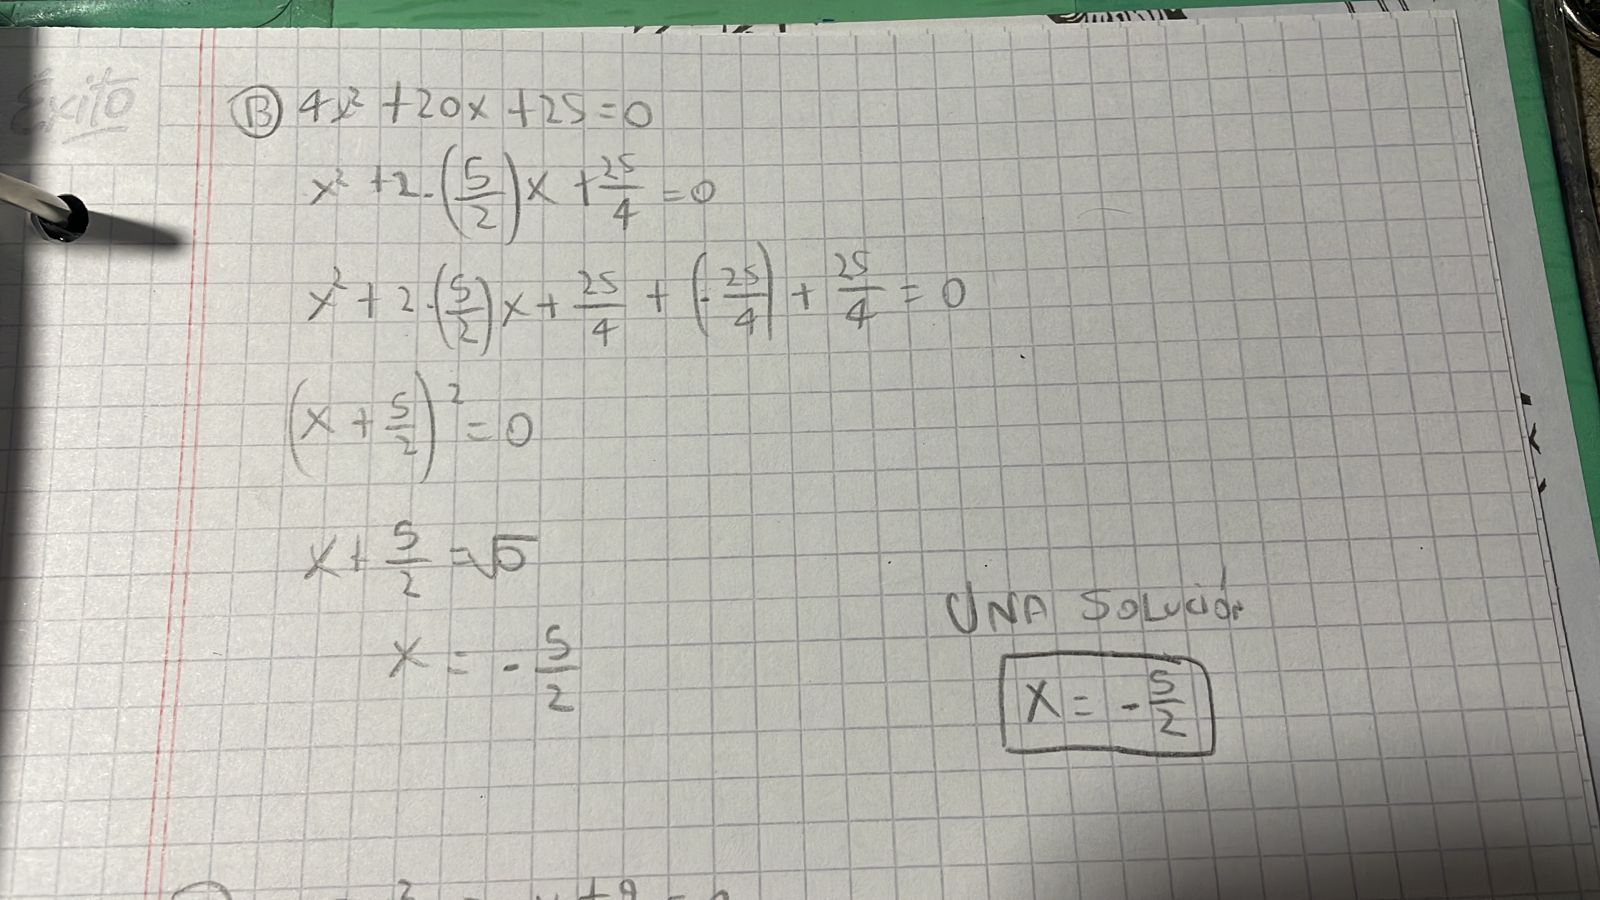 Éxito
B 4x² + 20x + 25 = 0
x² + 2·(5/2)x + 25/4 = 0
x² + 2·(5/2)x + 25/4 + (-25/4) + 25/4 = 0
(x + 5/2)² = 0
x + 5/2 = √0
x = -5/2
UNA SOLUCIÓN
x = -5/2